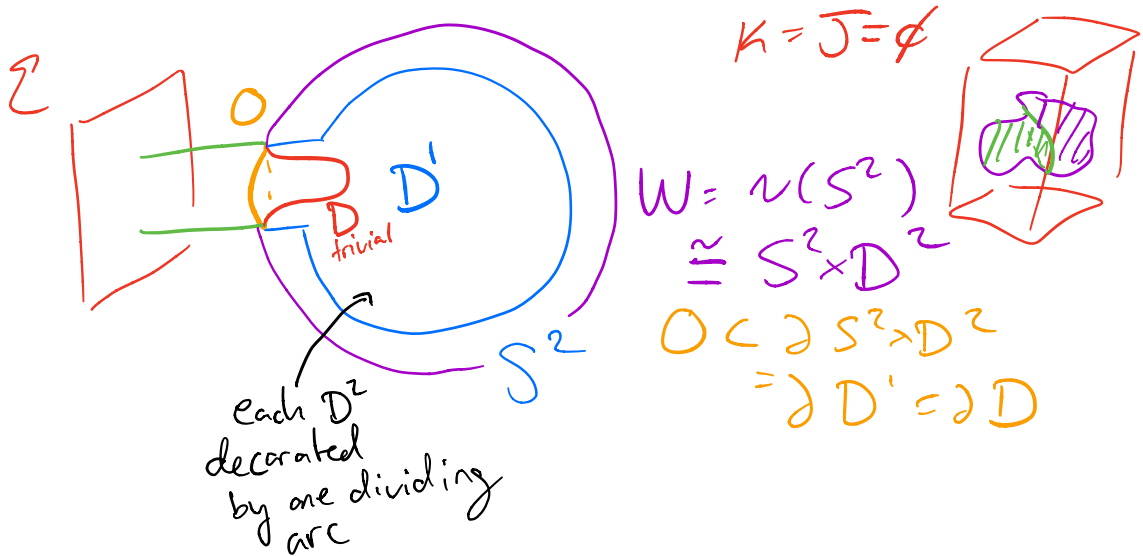 Σ
O
D'
D
trivial
S²
each D²
decorated
by one dividing
arc
K = J = ¢
W = ν(S²)
≅ S² × D²
O ⊂ ∂ S² × D²
= ∂ D' = ∂ D